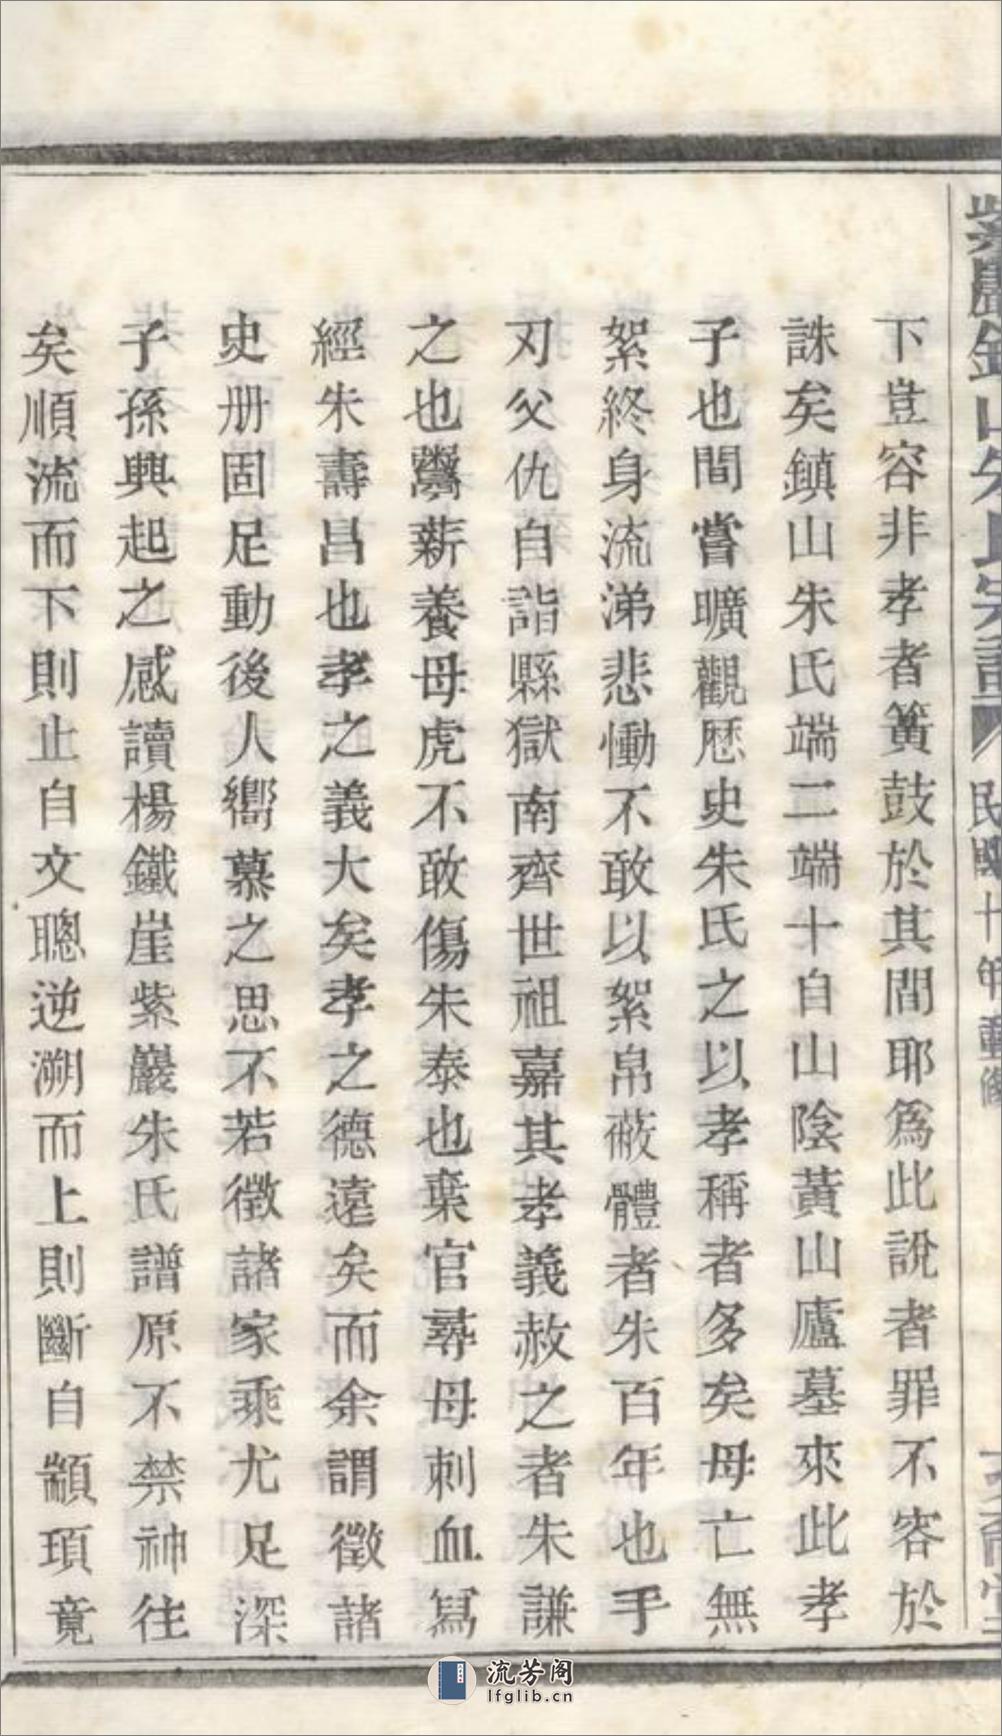 紫巖鎮山朱氏宗譜 民國十年重修
下豈容非孝者簧鼓於其間耶爲此說者罪不容於
誅矣鎮山朱氏端二端十自山陰黃山廬墓來此孝
子也間嘗曠觀歷史朱氏之以孝稱者多矣母亡無
絮終身流涕悲慟不敢以絮帛蔽體者朱百年也手
刃父仇自詣縣獄南齊世祖嘉其孝義赦之者朱謙
之也鬻薪養母虎不敢傷朱泰也棄官尋母刺血寫
經朱壽昌也孝之義大矣孝之德遠矣而余謂徵諸
史册固足動後人嚮慕之思不若徵諸家乘尤足深
子孫興起之感讀楊鐵崖紫巖朱氏譜原不禁神往
矣順流而下則止自文聰逆溯而上則斷自顓頊竟
流芳阁
lfglib.cn